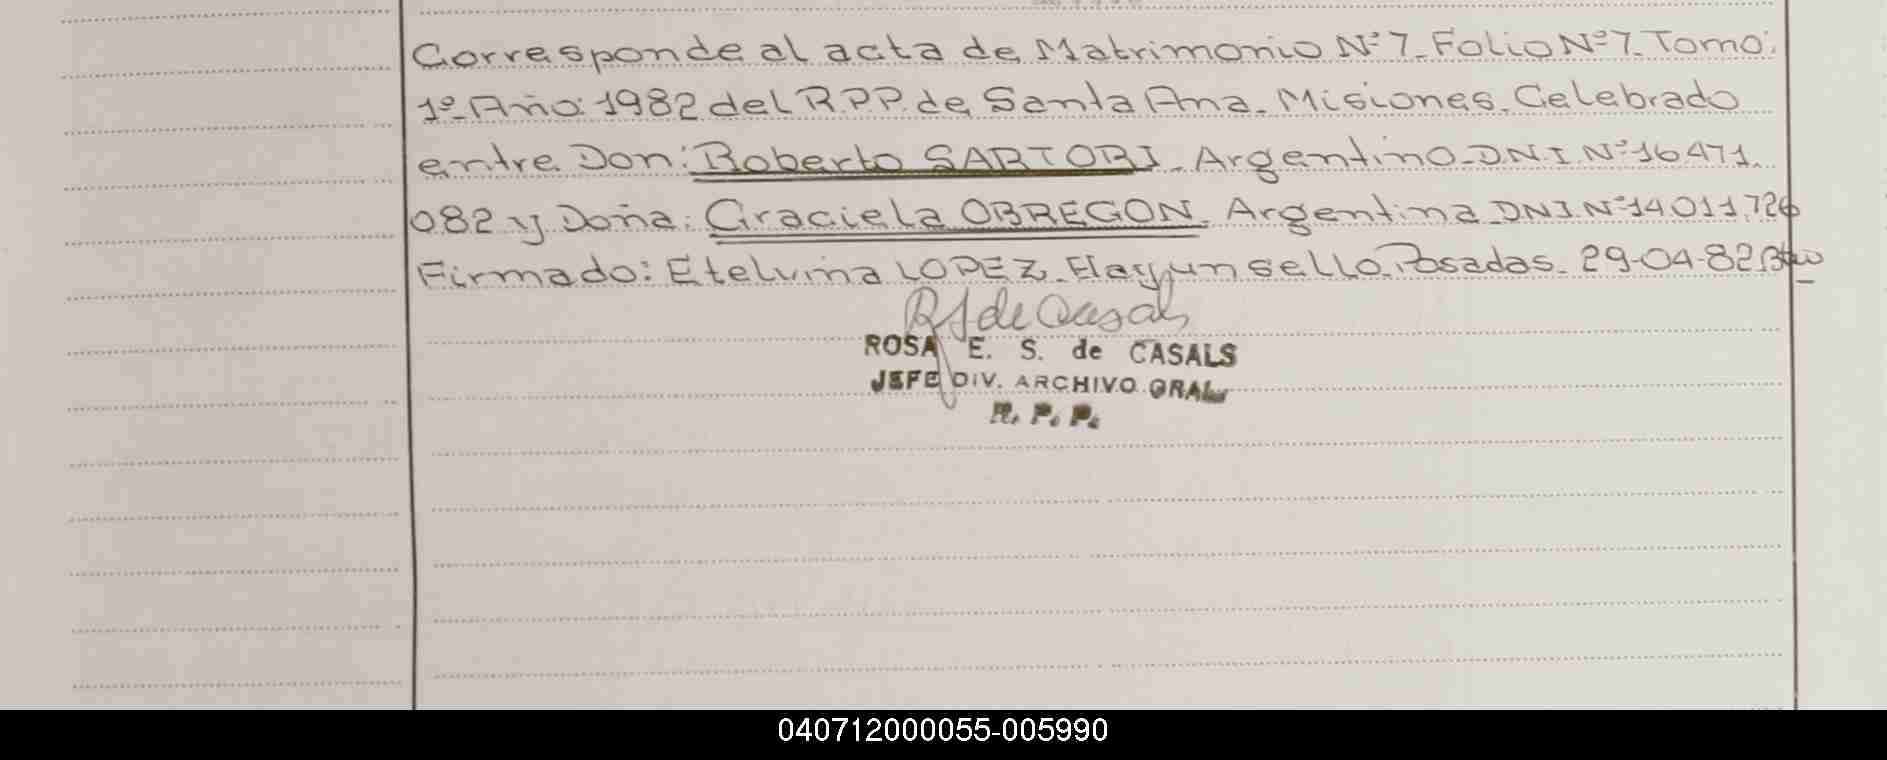 Corresponde al acta de Matrimonio Nº 7. Folio Nº 7. Tomo:
1º. Año: 1982 del R.P.P. de Santa Ana. Misiones. Celebrado
entre Don: Roberto SARTORI. Argentino. D.N.I. Nº 16.471.
082 y Doña: Graciela OBREGON. Argentina. D.N.I. Nº 14.011.726
Firmado: Etelvina LOPEZ. Hay un sello. Posadas. 29-04-82.
R S de Casals
ROSA E. S. de CASALS
JEFE DIV. ARCHIVO GRAL.
R. P. P.
040712000055-005990